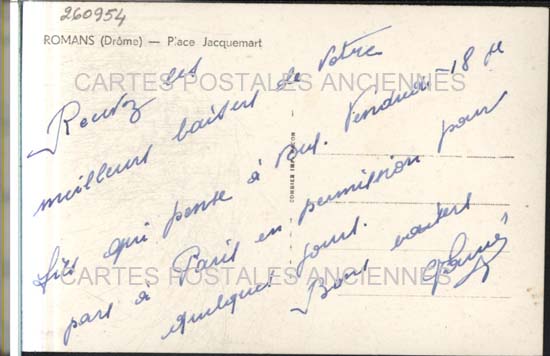 260954
ROMANS (Drôme) — Place Jacquemart
CARTES POSTALES ANCIENNES
Recevez les
meilleurs baisers de Votre
fils qui pense à vous. Vendredi 18 je
pars à Paris en permission pour
quelques jours.
Bons baisers
COMBIER IMP. MACON
CARTES POSTALES ANCIENNES